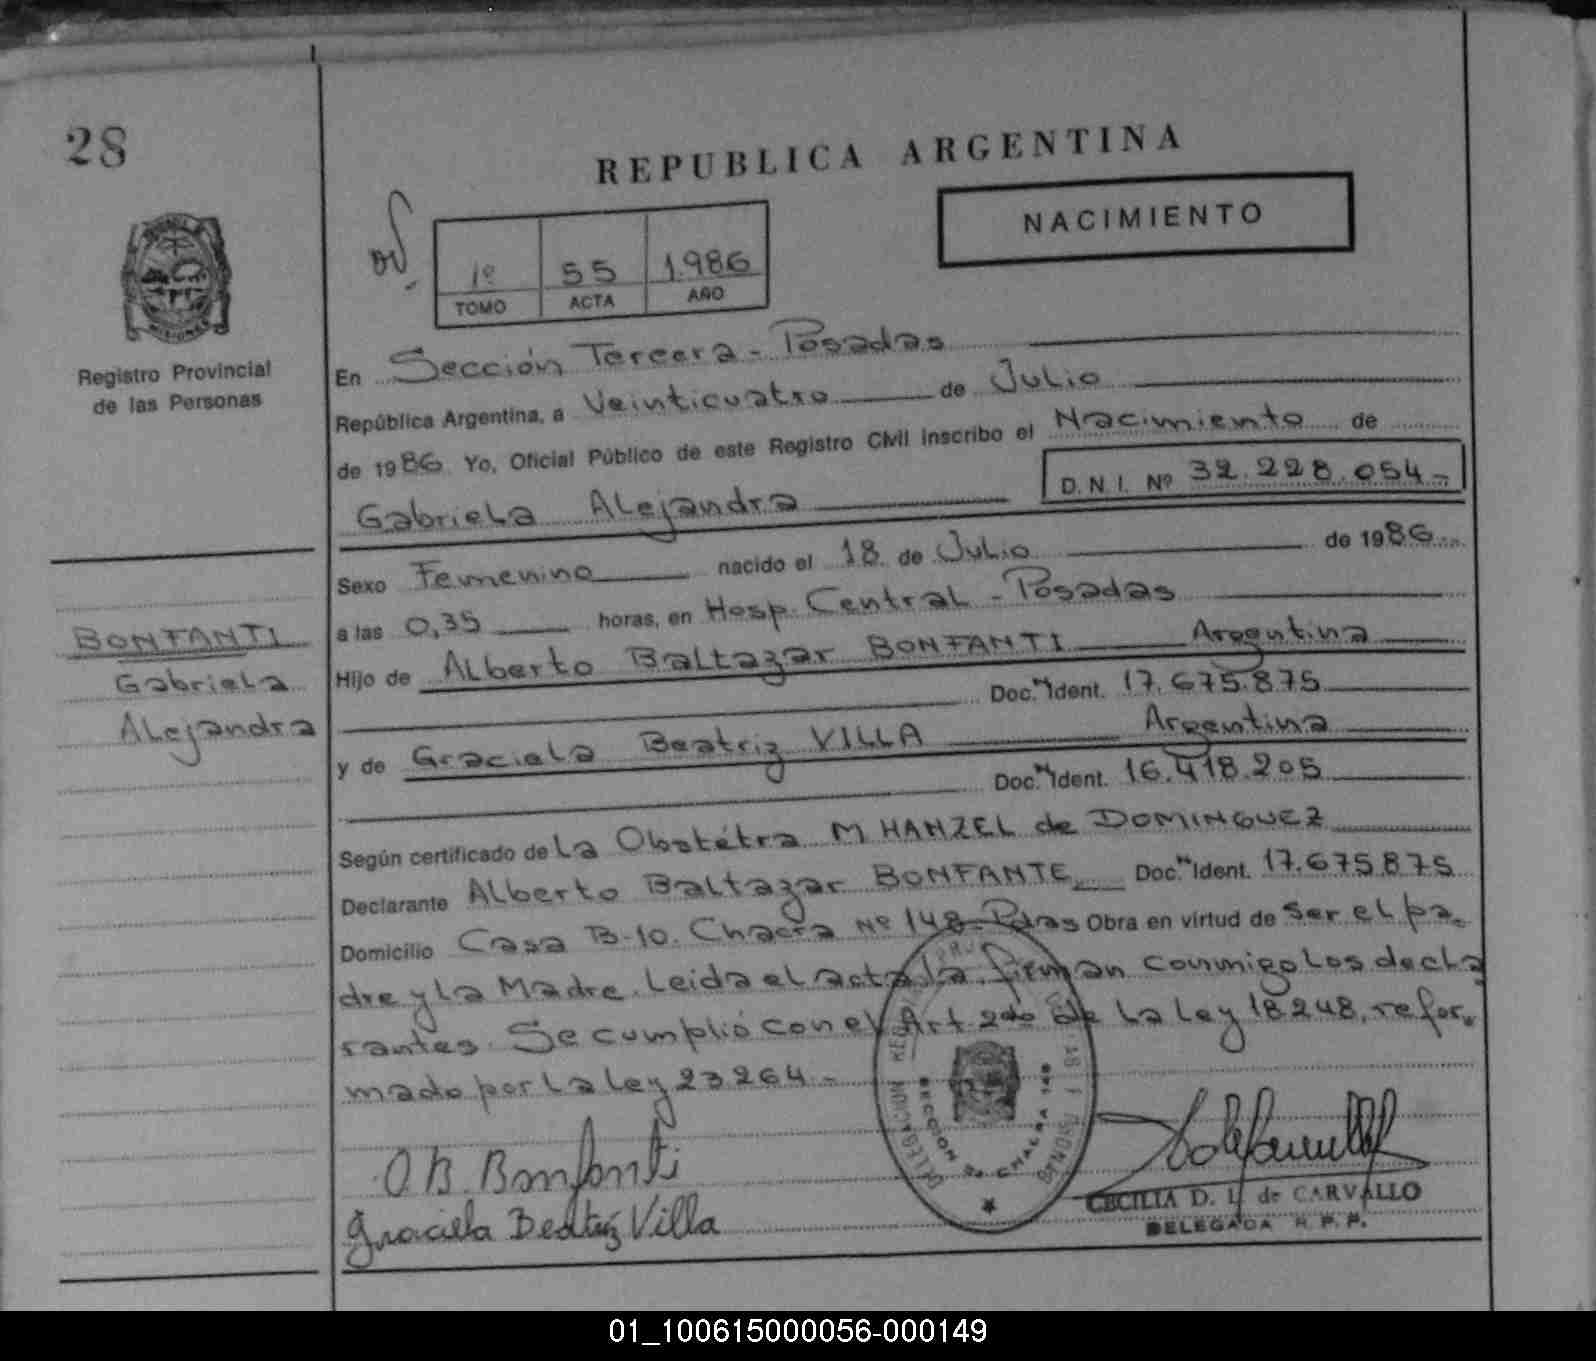 28
REPUBLICA ARGENTINA
NACIMIENTO
1º 55 1.986
TOMO ACTA AÑO
Registro Provincial
de las Personas
En Sección Tercera - Posadas
República Argentina, a Veinticuatro de Julio
de 1986 Yo, Oficial Público de este Registro Civil inscribo el Nacimiento de
Gabriela Alejandra D.N.I. Nº 32.228.054-
Sexo Femenino nacido el 18 de Julio de 1986
a las 0,35 horas, en Hosp. Central - Posadas
Hijo de Alberto Baltazar BONFANTI Argentina
Doc. Ident. 17.675.875
y de Graciela Beatriz VILLA Argentina
Doc. Ident. 16.418.205
Según certificado de La Obstétra M HANZEL de DOMINGUEZ
Declarante Alberto Baltazar BONFANTE Doc. Ident. 17.675.875
Domicilio Casa B-10. Chacra Nº 148- Pdas Obra en virtud de ser el pa-
dre y la Madre. Leida el acta la firman conmigo los decla
rantes. Se cumplió con el Art 2do de la Ley 18.248, refor-
mado por la Ley 23.264-
BONFANTI
Gabriela
Alejandra
O.B. Bonfanti
Graciela Beatriz Villa
CECILIA D. L. de CARVALLO
DELEGADA R.P.P.
DELEGACION
SECCION 3ª CHACRA 148
01_100615000056-000149